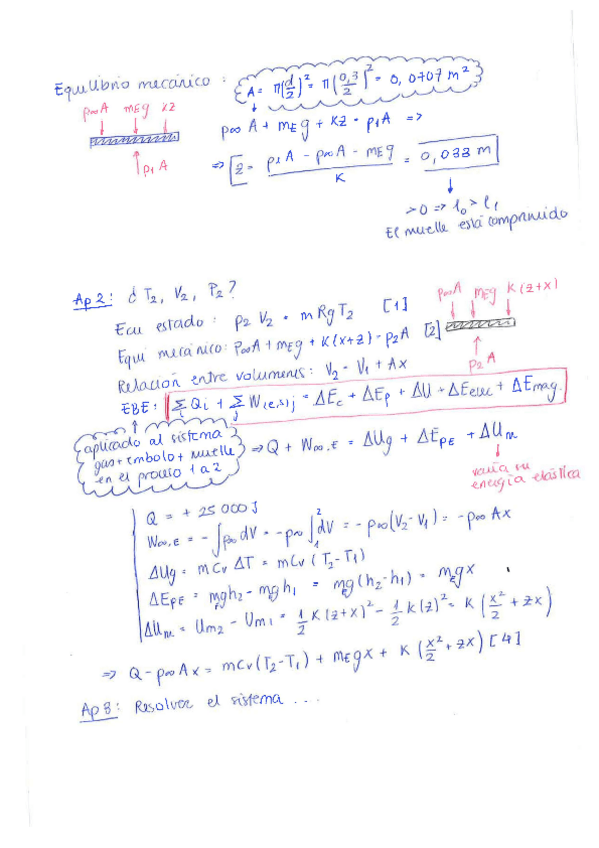 Equilibrio mecánico : A = π(d/2)² = π(0,3/2)² = 0,0707 m²
p∞A mEg KZ
p∞ A + mE g + KZ = p1A =>
p1 A
=> Z = (p1A - p∞A - mEg) / K = 0,033 m
>0 => l0 > l1
El muelle está comprimido
Ap 2: ¿ T2, V2, P2?
p∞A mEg K(z+x)
Ecu estado: p2 V2 = m Rg T2 [1]
Equi mecánico: P∞A + mEg + K(x+z) = p2A [2]
p2 A
Relación entre volumenes: V2 = V1 + Ax
EBE: Σi Qi + Σj W(e,s)j = ΔEc + ΔEp + ΔU + ΔEelec + ΔEmag.
aplicado al sistema
gas + embolo + muelle
en el proceso 1 a 2
=> Q + W∞,E = ΔUg + ΔEPE + ΔUm
varía su
energía elástica
Q = + 25 000 J
W∞,E = -∫p∞ dV = -p∞ ∫₁² dV = -p∞(V2-V1) = -p∞ Ax
ΔUg = m Cv ΔT = m Cv (T2-T1)
ΔEPE = mEgh2 - mEgh1 = mEg(h2-h1) = mEgx
ΔUm = Um2 - Um1 = 1/2 K(z+x)² - 1/2 K(z)² = K (x²/2 + zx)
=> Q - p∞ Ax = m Cv(T2-T1) + mEgx + K (x²/2 + zx) [4]
Ap 3: Resolver el sistema ...